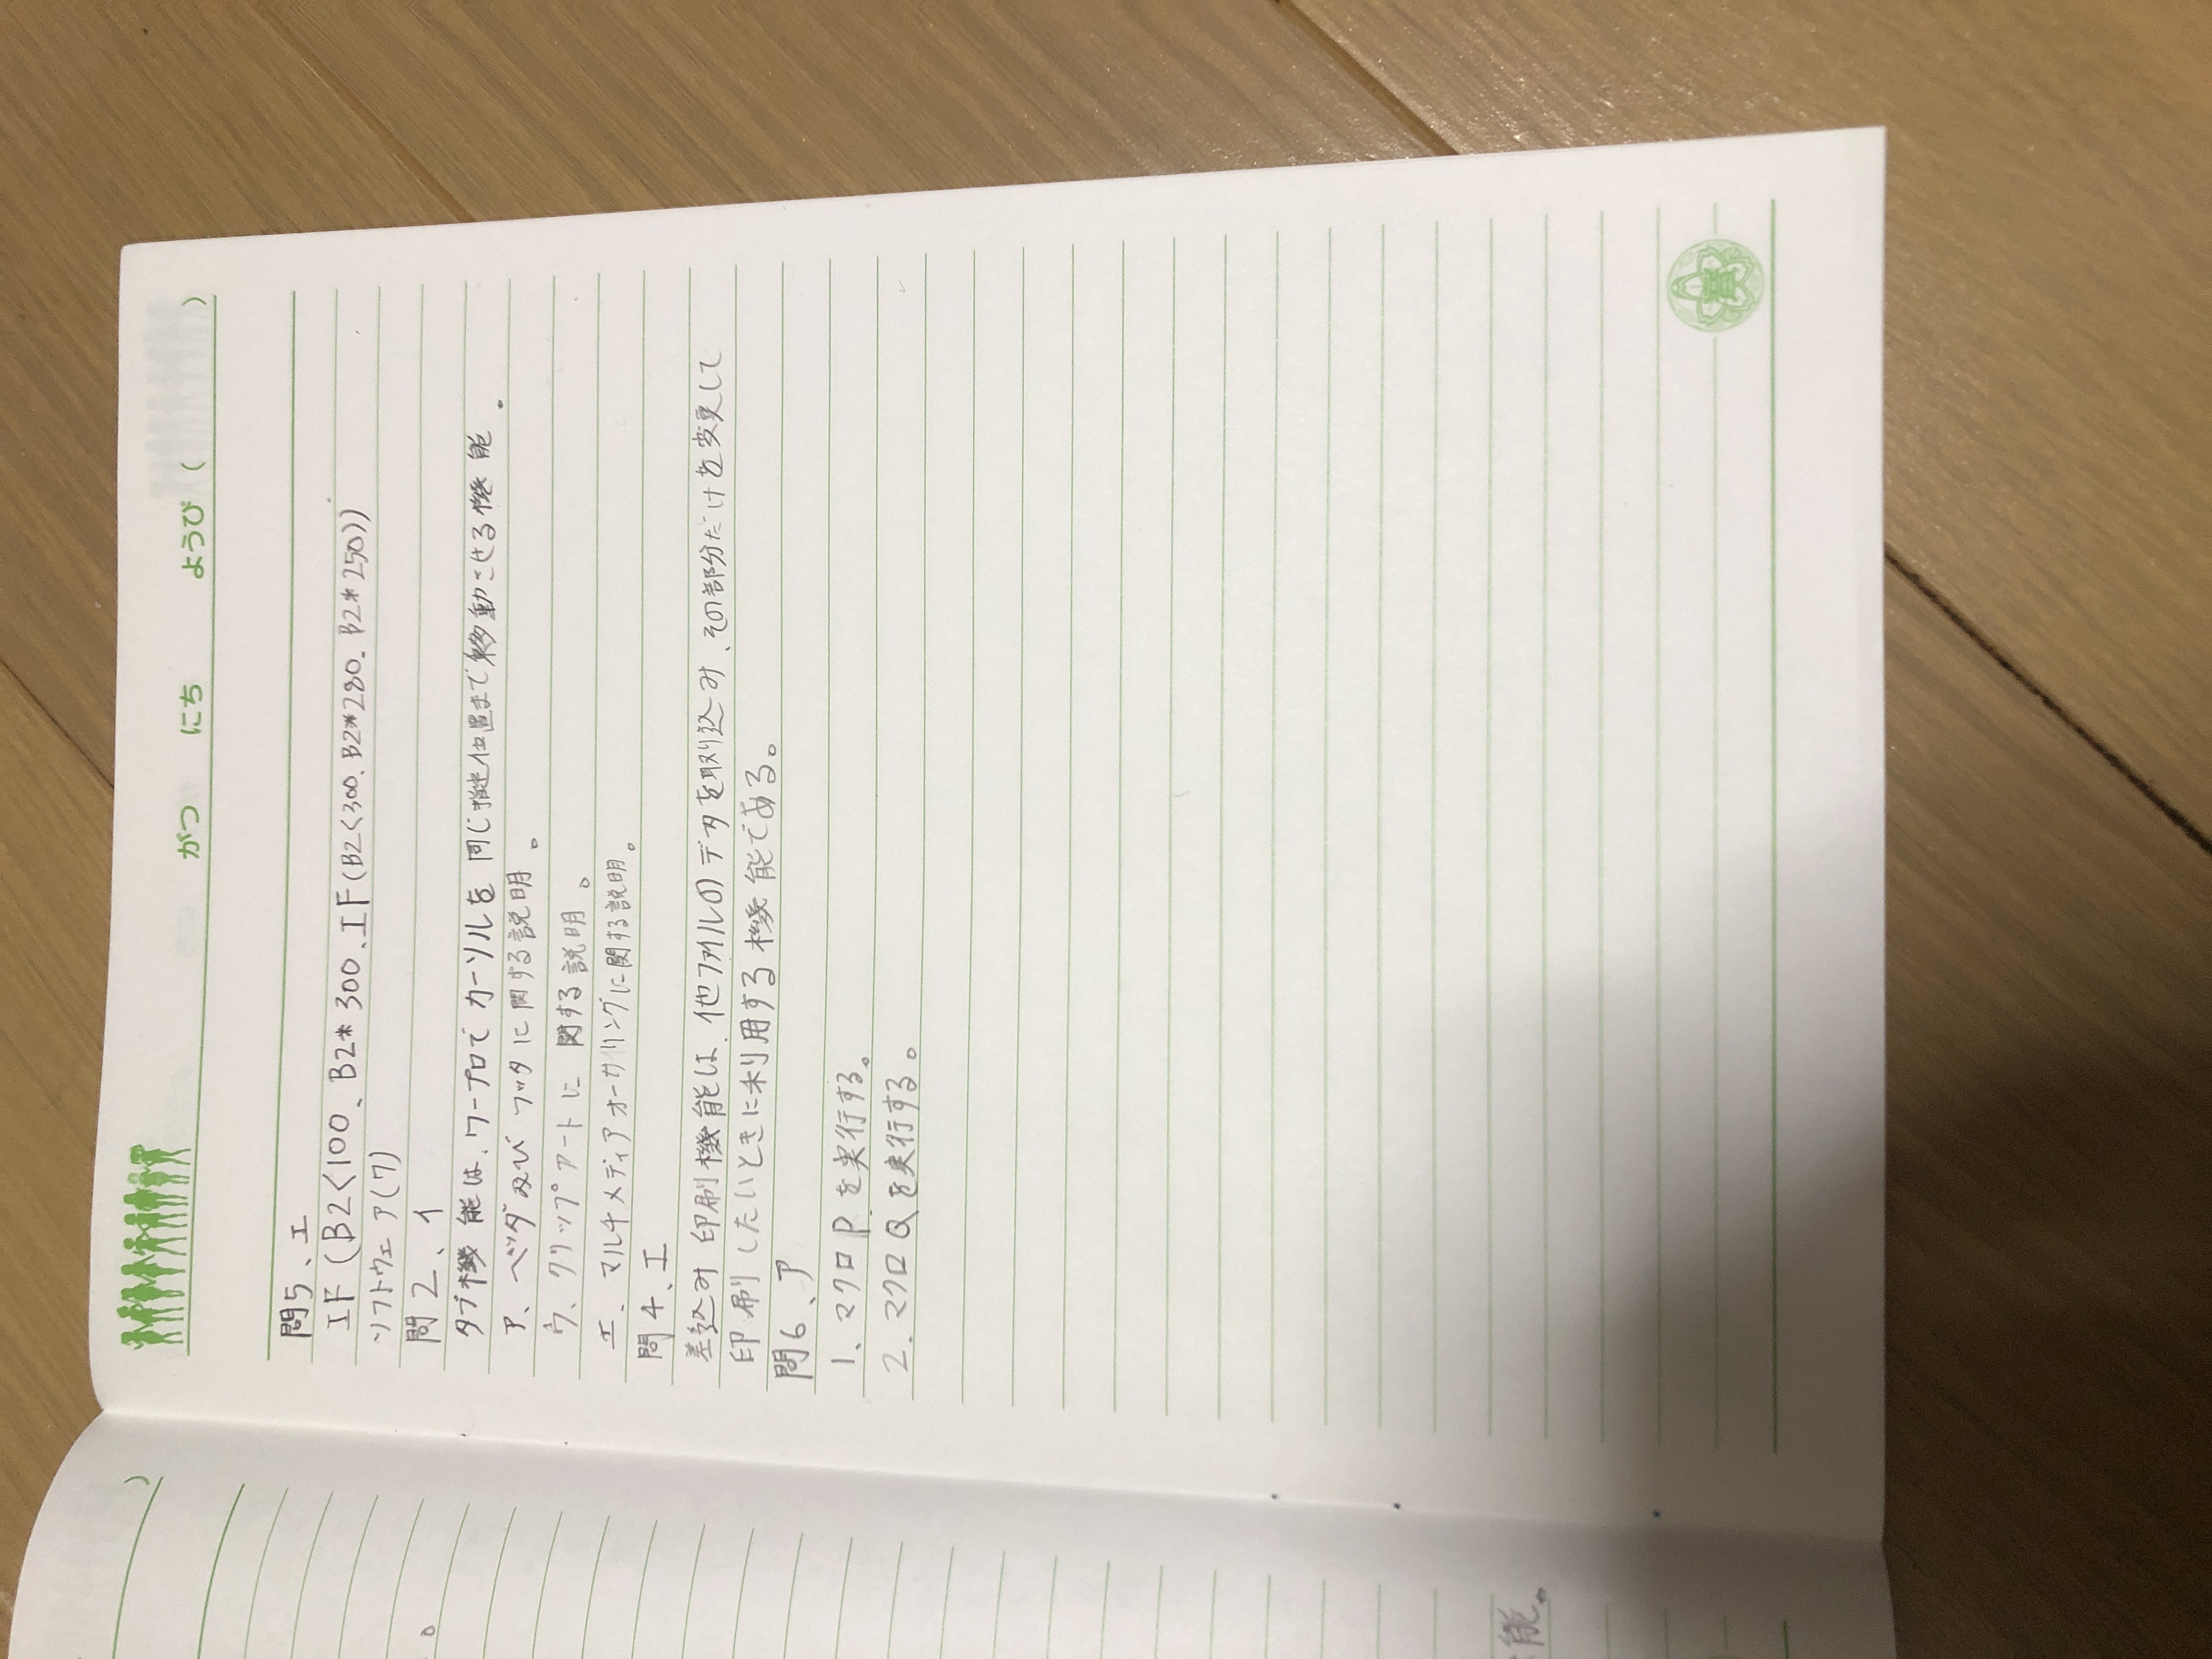 )
。
能。
がつ にち ようび ( )
問5、エ
IF(B2<100、B2*300、IF(B2<300、B2*280、B2*250))
ソフトウェア(7)
問2、イ
タブ機能は、ワープロでカーソルを同じ指定位置まで移動させる機能。
ア、ヘッダ及びフッタに関する説明。
ウ、クリップアートに関する説明。
エ、マルチメディアオーサリングに関する説明。
問4、エ
差込み印刷機能は、他ファイルのデータを取り込み、その部分だけを変更して
印刷したいときに利用する機能である。
問6、ア
1、マクロPを実行する。
2、マクロQを実行する。